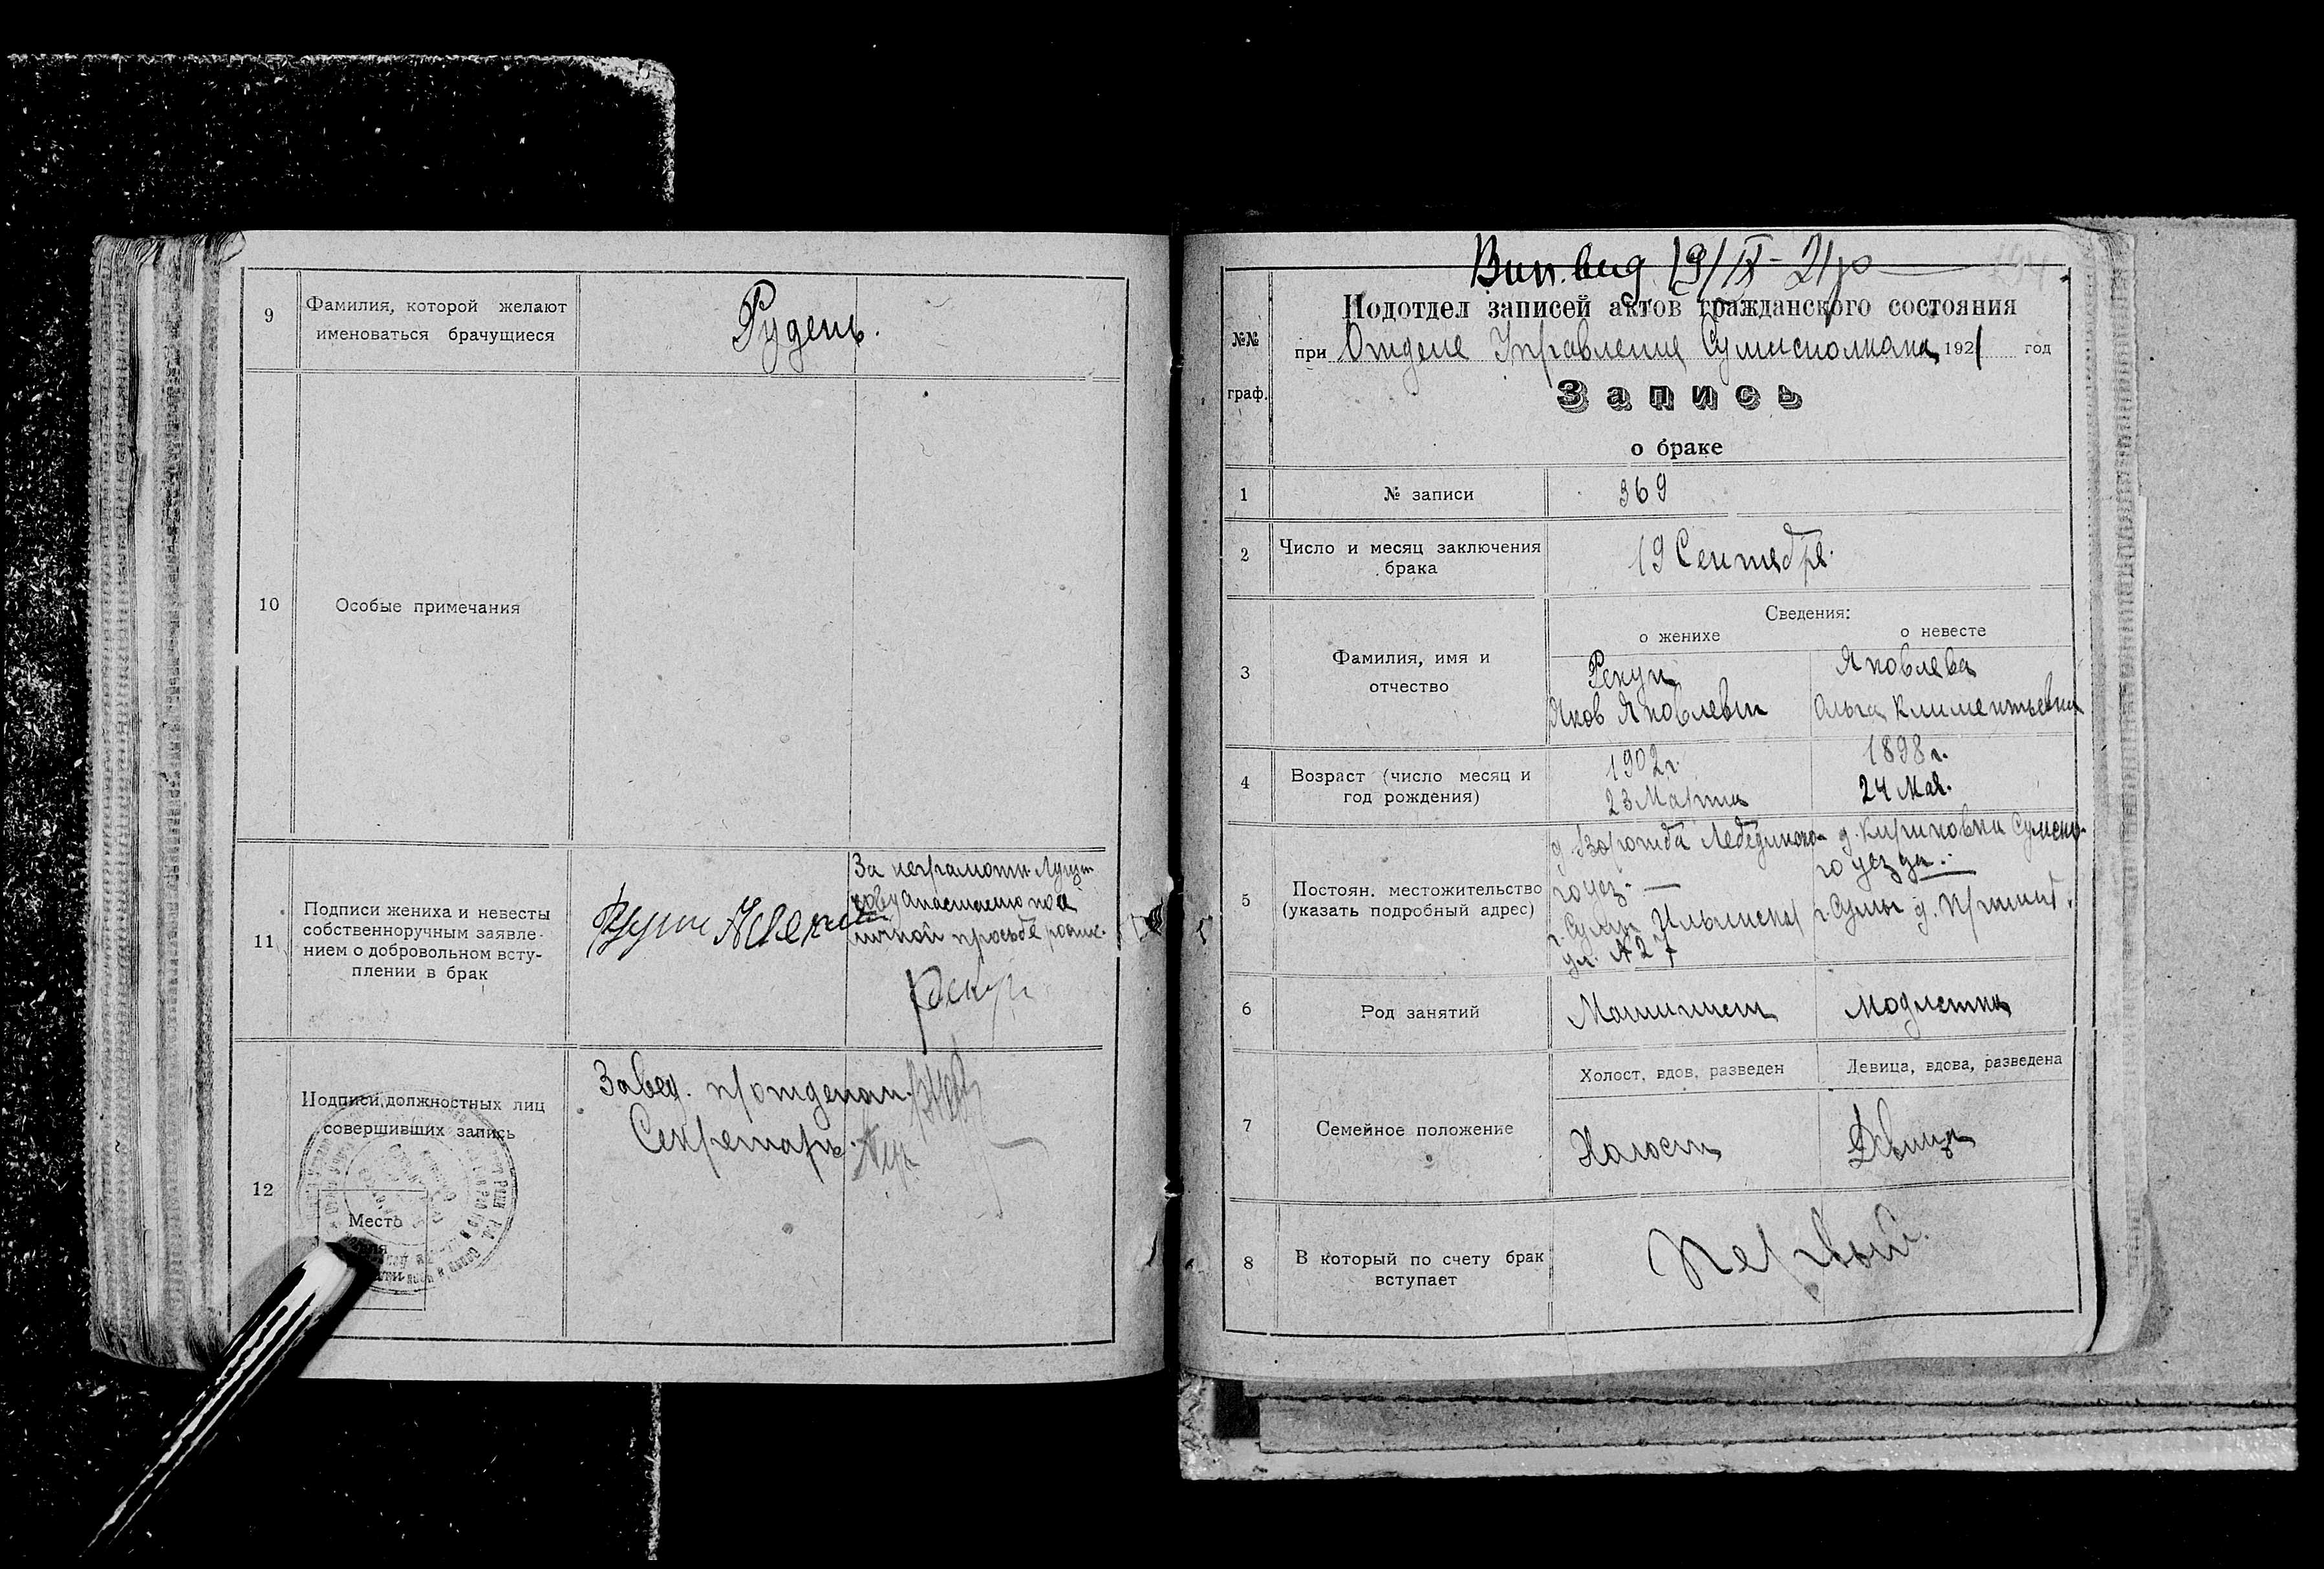 9
Фамилия, которой желают
именоваться брачущиеся
Рудень.
10
Особые примечания
11
Подписи жениха и невесты
собственноручным заявле-
нием о добровольном всту-
плении в брак
За неграмотн.
Анастасию по е
личной просьбе роспис.
Рекун
12
Подписи должностных лиц
совершивших запись
Место
Завед. п/отделом
Секретарь
Вып. вид 19/IX-21 р
Подотдел записей актов гражданского состояния
№№
граф.
при Отделе Управления Сумисполкома 1921 год
Запись
о браке
1
№ записи
369
2
Число и месяц заключения
брака
19 Сентября.
3
Фамилия, имя и
отчество
Сведения:
о женихе
о невесте
Рекун
Яков Яковлевич
Яковлева
Ольга Климентьевна
4
Возраст (число месяц и
год рождения)
1902 г.
23 Марта
1898 г.
24 Мая.
5
Постоян. местожительство
(указать подробный адрес)
д. Ворожба Лебединско-
го уез. —
г. Сумы Ильинская
ул. № 27
д. Кириковка Сумско-
го уезда. —
г. Сумы д.
6
Род занятий
Машинист
Модистка
7
Семейное положение
Холост, вдов, разведен
Девица, вдова, разведена
Холост
Девица
8
В который по счету брак
вступает
Первый.